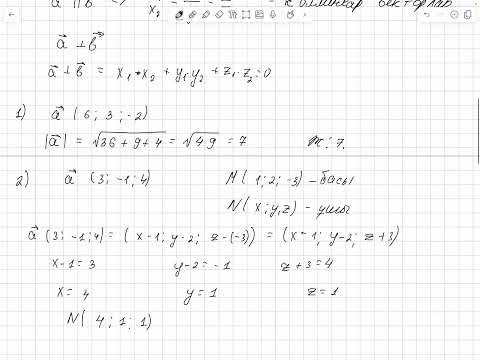 a⃗ || b⃗ коллинеар векторлар
x₂
a⃗ ⊥ b⃗
a⃗ ⊥ b⃗ = x₁·x₂ + y₁·y₂ + z₁·z₂ = 0
1) a⃗ (6; 3; -2)
|a⃗| = √36 + 9 + 4 = √49 = 7 ж: 7.
2) a⃗ (3; -1; 4) M(1; 2; -3) – басы
N(x; y; z) – ұшы
a⃗ (3; -1; 4) = (x-1; y-2; z-(-3)) = (x-1; y-2; z+3)
x-1 = 3 y-2 = -1 z+3 = 4
x = 4 y = 1 z = 1
N(4; 1; 1)